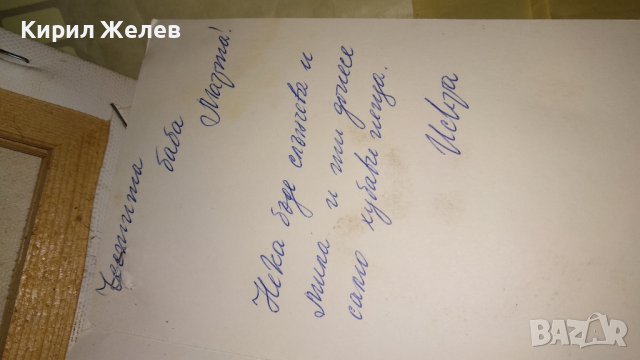 Кирил Желев
Честита баба Марта!
Нека бъде слънчева и
мила и ти донесе
само хубави неща.
BAZAR
bg